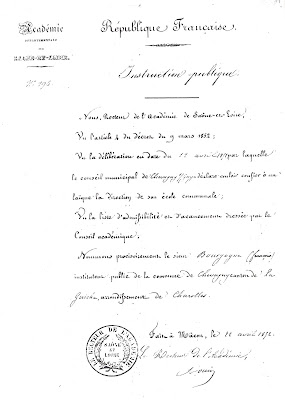 Académie
DÉPARTEMENTALE
DE
SAONE-ET-LOIRE.
République Française.
Instruction publique.
Nous, Recteur de l'Académie de Saône-et-Loire;
Vu l'article 4 du décret du 9 mars 1852;
Vu la délibération en date du avril par laquelle
le conseil municipal de déclare vouloir confier à un
laïque la direction de son école communale;
Vu la liste d'admissibilité et d'avancement dressée par le
Conseil académique.
Nommons provisoirement le sieur Bourgogne (françois)
instituteur public de la commune de canton de la
Guiche, arrondissement de Charolles.
Fait à Mâcon, le 22 avril 1852.
Le Recteur de l'Académie,
LE RECTEUR DE L'ACADÉMIE
SAÔNE
ET
LOIRE